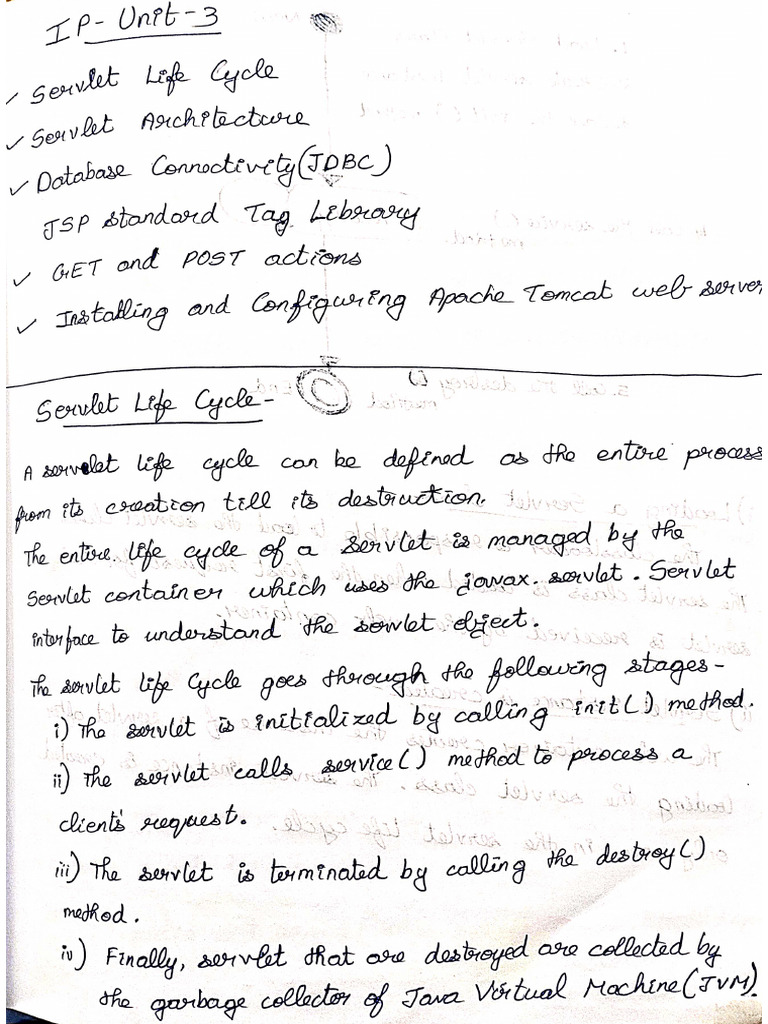 IP- Unit-3
✓ Servlet Life Cycle
✓ Servlet Architecture
✓ Database Connectivity (JDBC)
JSP standard Tag Library
✓ GET and POST actions
✓ Installing and Configuring Apache Tomcat web server
Servlet Life Cycle-
A servlet life cycle can be defined as the entire process
from its creation till its destruction.
The entire life cycle of a servlet is managed by the
servlet container which uses the javax.servlet.Servlet
interface to understand the servlet object.
The servlet life cycle goes through the following stages-
i) The servlet is initialized by calling init() method.
ii) The servlet calls service() method to process a
client's request.
iii) The servlet is terminated by calling the destroy()
method.
iv) Finally, servlet that are destroyed are collected by
the garbage collector of Java Virtual Machine (JVM).